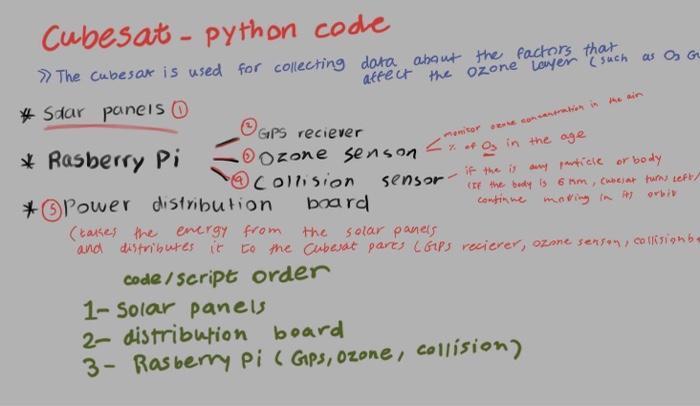 Cubesat - python code
>> The cubesat is used for collecting data about the factors that
affect the ozone layer (such as O3 G
* Solar panels ①
② GPS reciever
monitor ozone concentration in the air
* Rasberry Pi
③ Ozone senson
% of O3 in the age
④ Collision sensor
if the is any particle or body
(If the body is 6 mm, cubesat turns left/
continue moving in its orbit
* ⑤ Power distribution board
(takes the energy from the solar panels
and distributes it to the Cubesat parts (GPS reciever, ozone senson, collision
code/script order
1- Solar panels
2- distribution board
3- Rasberry Pi (GPS, Ozone, collision)